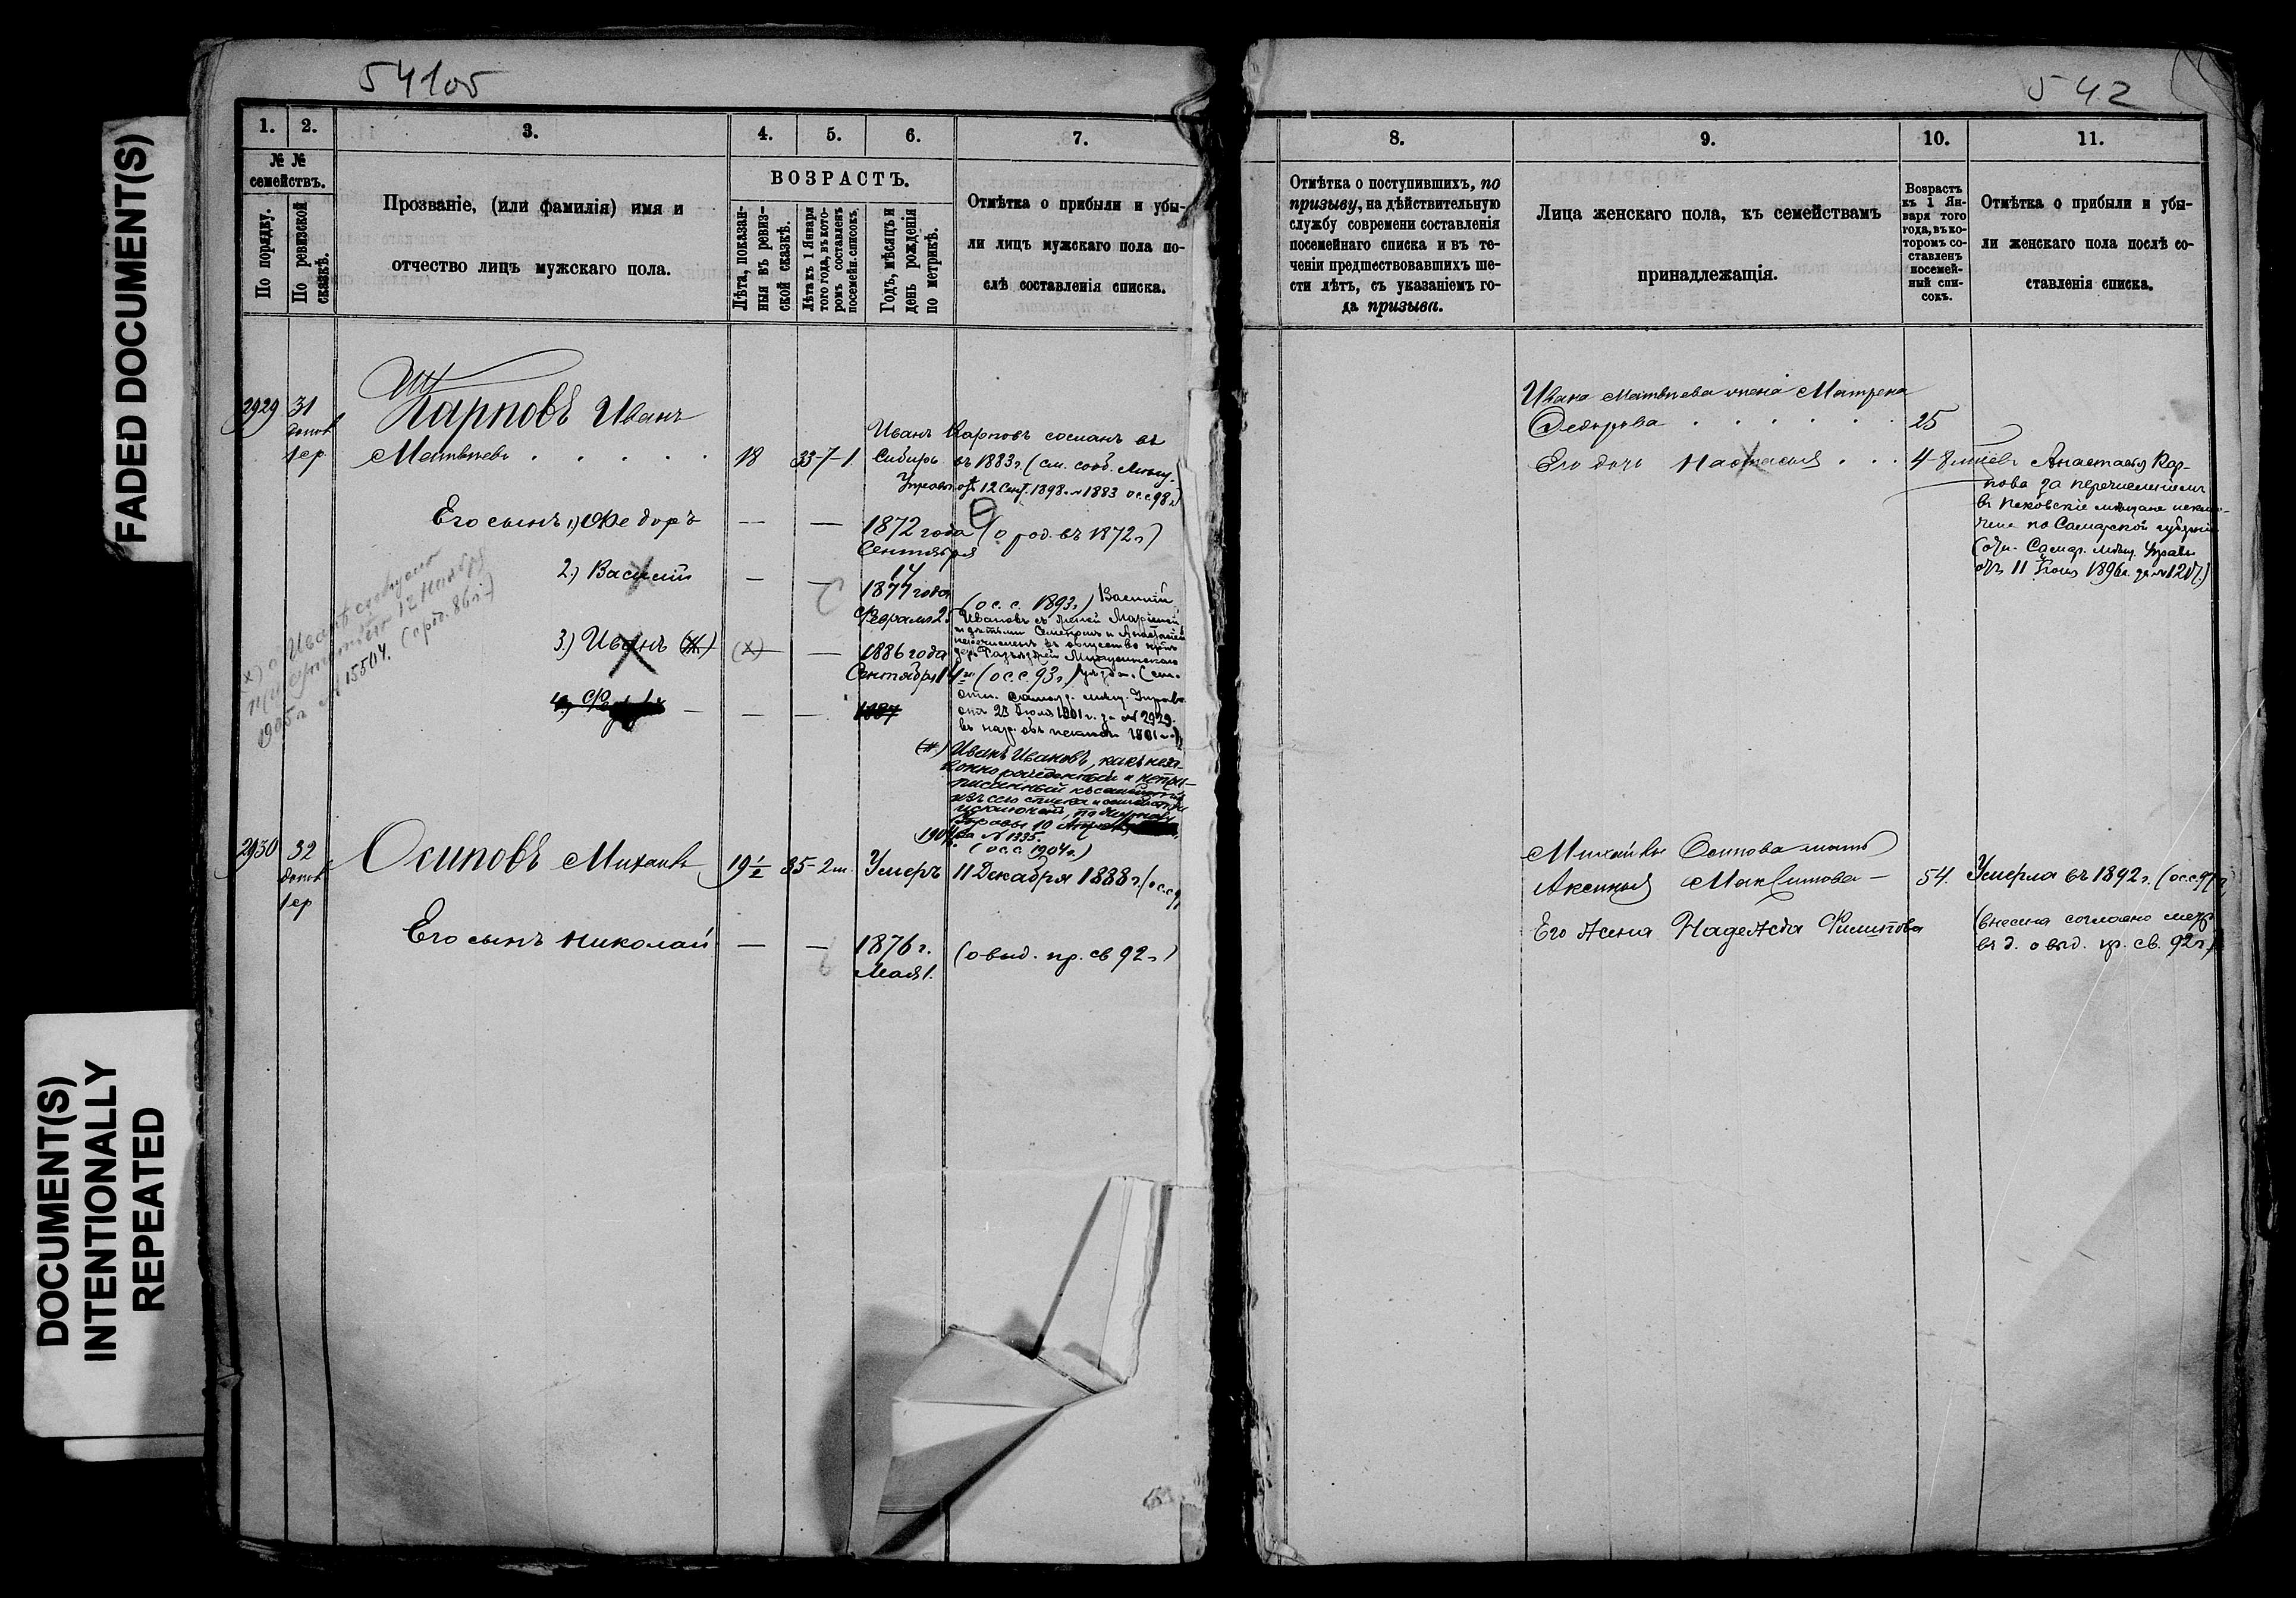 FADED DOCUMENT(S)
DOCUMENT(S)
INTENTIONALLY
REPEATED
54105
1. 2. 3. 4. 5. 6. 7.
№ №
семействъ.
По порядку.
По ревизской
сказкѣ.
Прозваніе, (или фамилія) имя и
отчество лицъ мужскаго пола.
ВОЗРАСТЪ.
Лѣта, показан-
ныя въ ревиз-
ской сказкѣ.
Лѣта къ 1 Января
того года, въ кото-
ромъ составленъ
посемейн. списокъ.
Годъ, мѣсяцъ и
день рожденія
по метрикѣ.
Отмѣтка о прибыли и убы-
ли лицъ мужскаго пола по-
слѣ составленія списка.
2929 31
1 ер
Карповъ Иванъ
Матвѣевъ . . . . . 18 33-7-1
Иванъ Карповъ сосланъ въ
Сибирь въ 1883 г. (см. сооб. Мѣщ.
Управы отъ 12 Сент. 1898 г. № 1883 о.с. с 98 г.)
Его сынъ 1.) Ѳедоръ — — 1872 года (о род. въ 1872 г.)
Сентября
14
2.) Василій — — 1877 года
Февраля 2.
(о с. с. 1893 г.) Василій
Ивановъ съ женой Маріей
3.) Иванъ (Ж.) (х) — 1886 года
Сентября 14 (о с. с. 93 г.)
отъ 28 Іюля 1901 г. за № 2929.
4.) — — — 1887
(ж.) Иванъ Ивановъ, какъ неза-
конно рожденный и непри-
писанный къ
Управы 10
1904 за № 1835.
(о с. с. 1904 г.)
х) о Иванѣ
12 Ноября
1905 г. № 15504. (о род. 86 г.)
2930 32
1 ер
Осиповъ Михаилъ 19 1/2 35-2 м. Умеръ 11 Декабря 1888 г.
Его сынъ Николай — — 1876 г. (о выд. пр. св 92 г.)
Мая 1.
542
8. 9. 10. 11.
Отмѣтка о поступившихъ, по
призыву, на дѣйствительную
службу современи составленія
посемейнаго списка и въ те-
ченіи предшествовавшихъ ше-
сти лѣтъ, съ указаніемъ го-
да призыва.
Лица женскаго пола, къ семействамъ
принадлежащія.
Возрастъ
къ 1 Ян-
варя того
года, въ ко-
торомъ со-
ставленъ
посемей-
ный спи-
сокъ.
Отмѣтка о прибыли и убы-
ли женскаго пола послѣ со-
ставленія списка.
Ивана Матвѣева жена Матрена
Федорова . . . . . . 25
Его дочь Настасья . . . 4-8 мѣсев
Анастасія Кар-
пова за перечисленіемъ
въ Псковскіе мѣщане исклю-
чена по Самарской губерніи
(отн. Самар. мѣщ. Управы
отъ 11 Іюня 1896 г. за № 1217.)
Михаила Осипова мать
Аксинья Максимова — 54. Умерла въ 1892 г.
Его жена Надежда Филипова
(внесена согласно метр
въ д. о выд. пр. св. 92 г.)